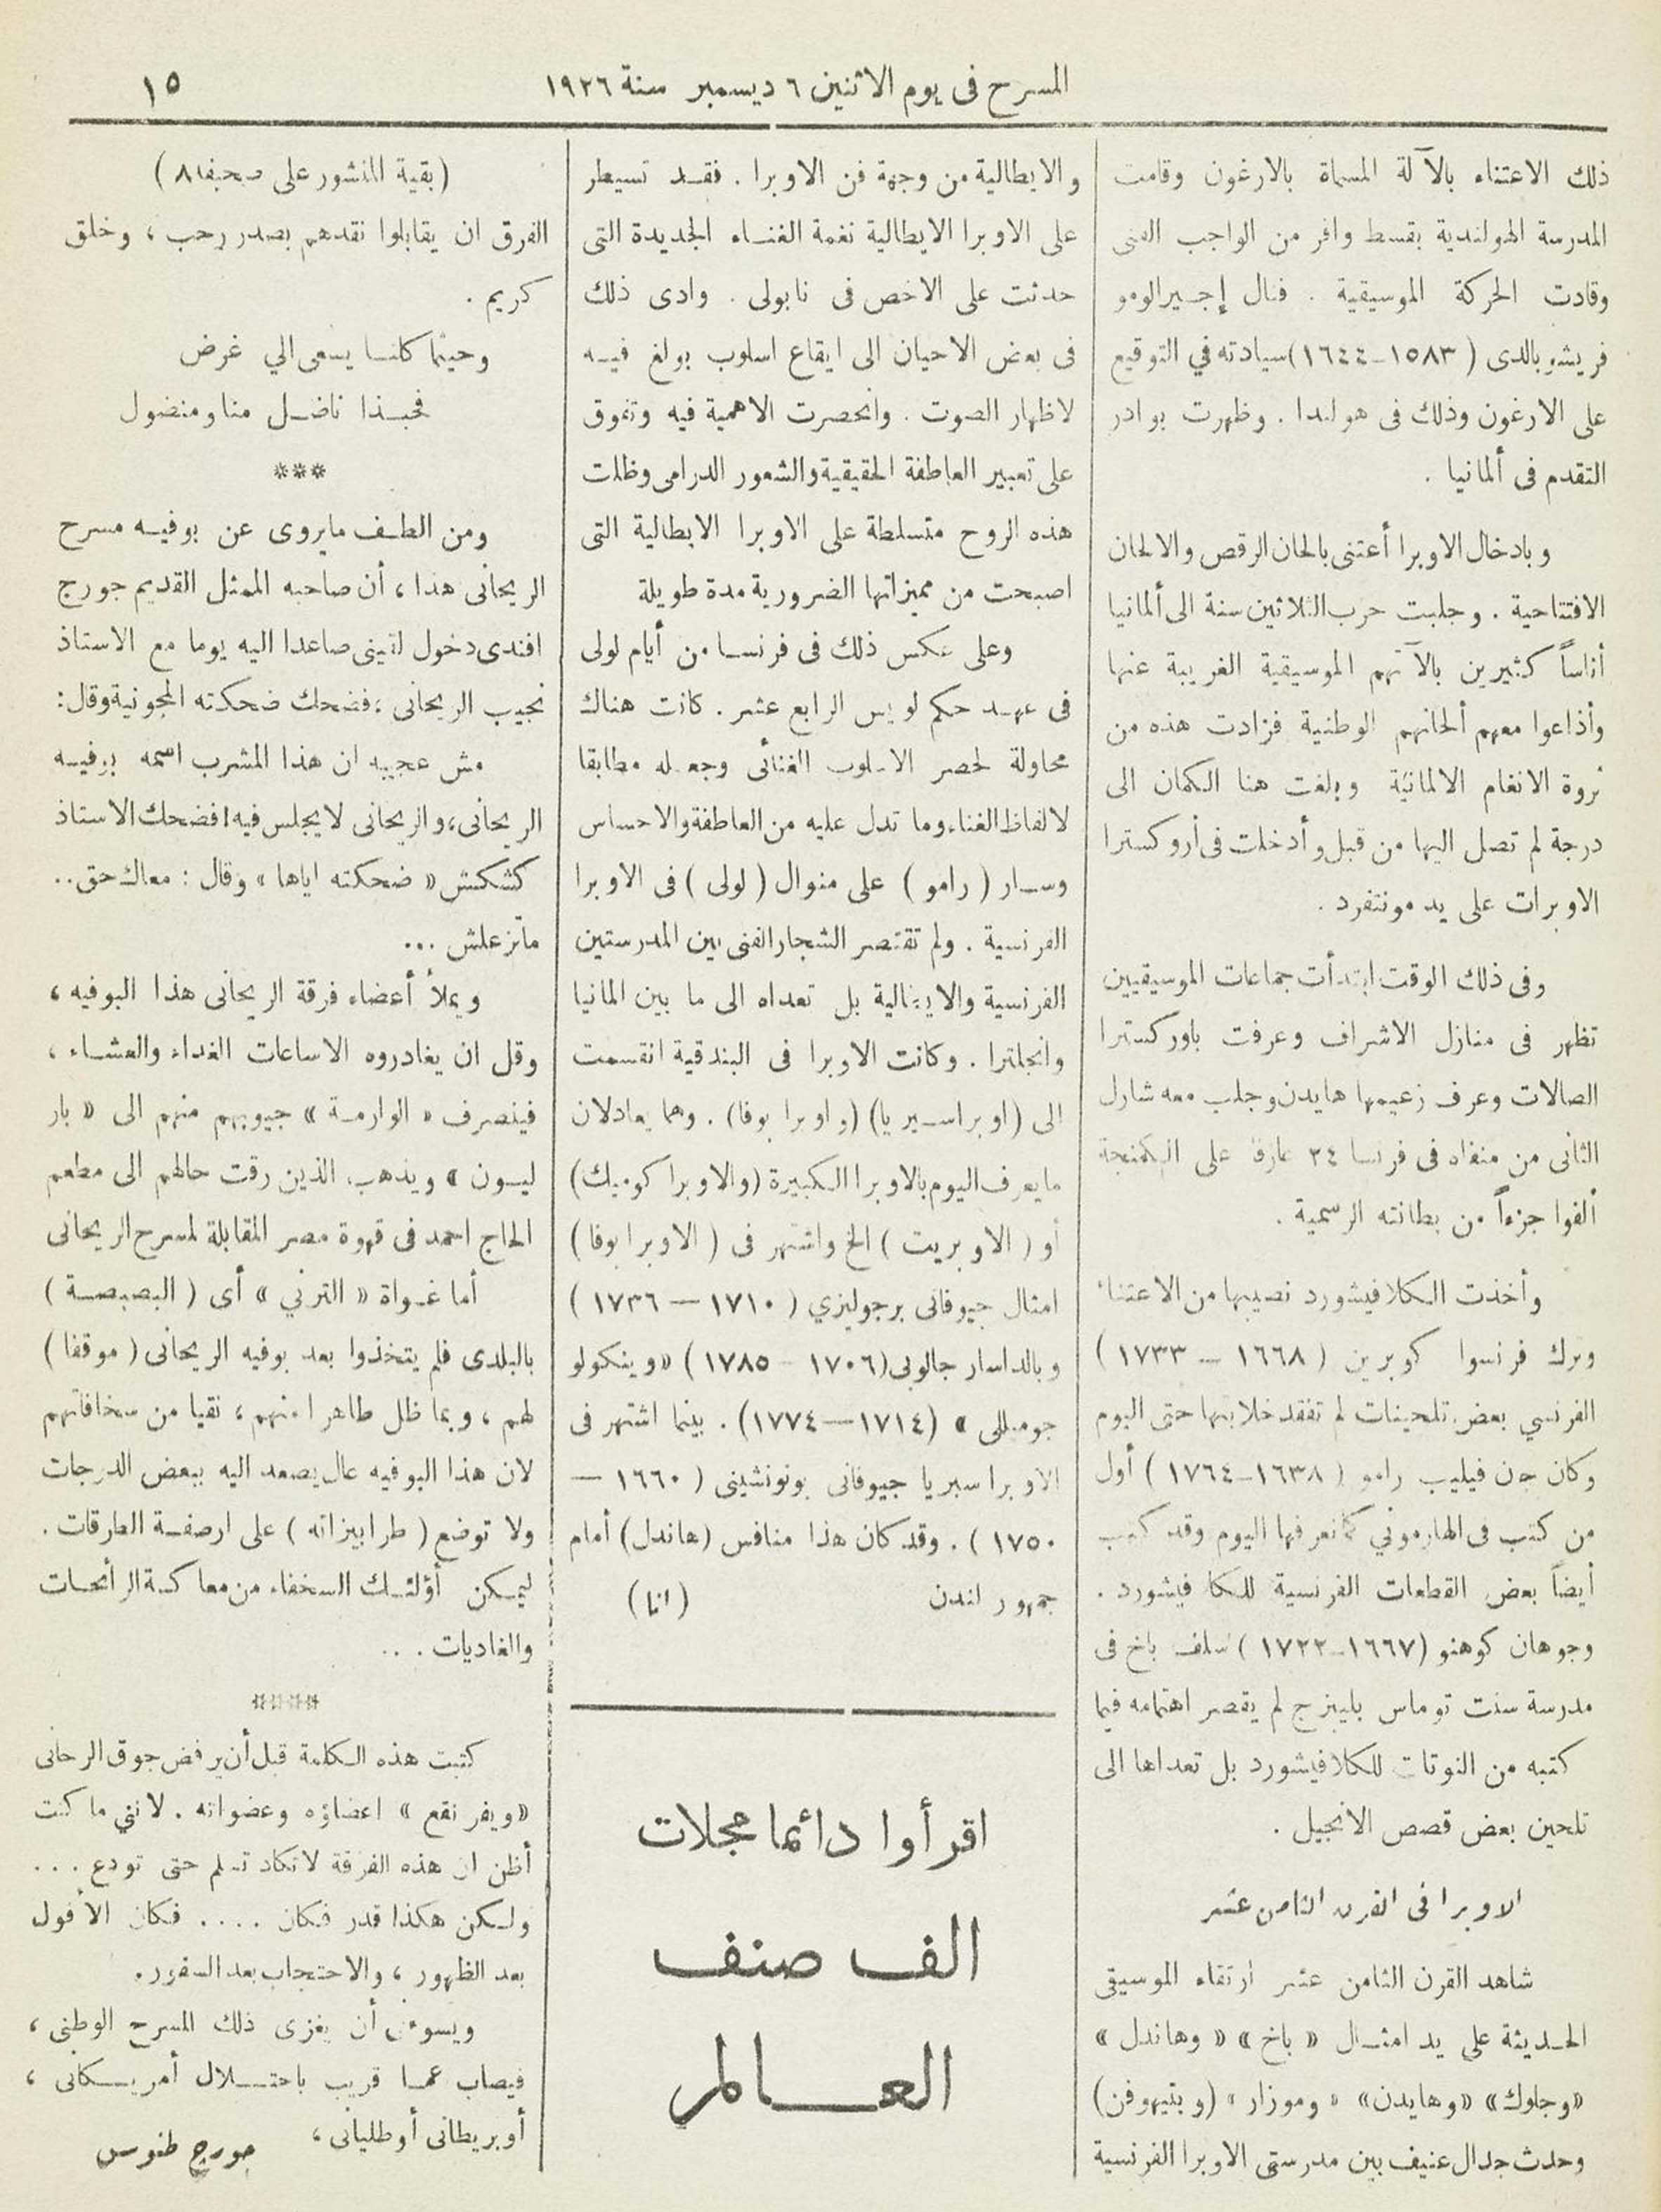 المسرح فى يوم الاثنين ٦ ديسمبر سنة ١٩٢٦
١٥
ذلك الاعتناء بالآلة المسماة بالارغون وقامت
المدرسة الهولندية بقسط وافر من الواجب الفنى
وقادت الحركة الموسيقية . فنال إجيرالومو
فريشوبالدى ( ١٥٨٣-١٦٤٤) سيادته في التوقيع
على الارغون وذلك فى هولندا . وظهرت بوادر
التقدم فى ألمانيا .
وبادخال الاوبرا أعتنى بالحان الرقص والالحان
الافتتاحية . وجلبت حرب الثلاثين سنة الى ألمانيا
أناساً كثيرين بالآتهم الموسيقية الغريبة عنها
وأذاعوا معهم ألحانهم الوطنية فزادت هذه من
ثروة الانغام الالمانية وبلغت هنا الكمان الى
درجة لم تصل اليها من قبل وأدخلت فى أروكسترا
الاوبرات على يد مونتفرد .
وفى ذلك الوقت ابتدأت جماعات الموسيقيين
تظهر فى منازل الاشراف وعرفت باوركسترا
الصالات وعرف زعيمها هايدن وجلب معه شارل
الثانى من منفاه فى فرنسا ٣٤ عازفا على الكمنجة
ألفوا جزءاً من بطانته الرسمية .
وأخذت الكلافيشورد نصيبها من الاعتناء
وترك فرنسوا كوبرين ( ١٦٦٨ — ١٧٣٣ )
الفرنسي بعض تلحينات لم تفقد خلابتها حتى اليوم
وكان جون فيليب رامو ( ١٦٣٨-١٧٦٤ ) أول
من كتب فى الهارموني كما نعرفها اليوم وقد كتب
أيضاً بعض القطعات الفرنسية للكلا فيشورد .
وجوهان كوهنو (١٦٦٧-١٧٢٢ ) سلف باخ فى
مدرسة سنت توماس بليبزج لم يقصر اهتمامه فيما
كتبه من النوتات للكلافيشورد بل تعداها الى
تلحين بعض قصص الانجيل .
الاوبرا فى القرن الثامن عشر
شاهد القرن الثامن عشر ارتقاء الموسيقى
الحديثة على يد امثال « باخ » « وهاندل »
«وجلوك» «وهايدن» « وموزار » (وبتيهوفن)
وحدث جدال عنيف بين مدرستى الاوبرا الفرنسية
والايطالية من وجهة فن الاوبرا . فقد تسيطر
على الاوبرا الايطالية نغمة الغناء الجديدة التى
حدثت على الاخص فى نابولى . وادى ذلك
فى بعض الاحيان الى ايقاع اسلوب بولغ فيه
لاظهار الصوت . وانحصرت الاهمية فيه وتفوق
على تعبير العاطفة الحقيقية والشعور الدرامى وظلت
هذه الروح متسلطة على الاوبرا الايطالية التى
اصبحت من مميزاتها الضرورية مدة طويلة
وعلى عكس ذلك فى فرنسا من أيام لولى
فى عهد حكم لويس الرابع عشر . كانت هناك
محاولة لحصر الاسلوب الغنائى وجعله مطابقا
لالفاظ الغناء وما تدل عليه من العاطفة والاحساس
وسار ( رامو ) على منوال ( لولى ) فى الاوبرا
الفرنسية . ولم تقتصر الشجار الفنى بين المدرستين
الفرنسية والايطالية بل تعداه الى ما بين المانيا
وانجلترا . وكانت الاوبرا فى البندقية انقسمت
الى (اوبراسيريا) (واوبرا بوفا) . وهما يعادلان
مايعرف اليوم بالاوبرا الكبيرة (والاوبرا كوميك)
أو ( الاوبريت ) الخ واشتهر فى ( الاوبرا بوفا )
امثال جيوفانى برجوليزي ( ١٧١٠ — ١٧٣٦ )
وبالداسار جالوبى (١٧٠٦ - ١٧٨٥ ) «وينكولو
جوميللى » (١٧١٤—١٧٧٤) . بينما اشتهر فى
الاوبرا سيريا جيوفانى بونونشينى ( ١٦٦٠ —
١٧٥٠ ) . وقد كان هذا منافس (هاندل) أمام
جمهور لندن (انا)
اقرأوا دائما مجلات
الف صنف
العالم
(بقية المنشور على صحيفة ٨ )
الفرق ان يقابلوا نقدهم بصدر رحب ، وخلق
كريم .
وحيثما كلنا يسعى الي غرض
فحبذا ناضل منا ومنضول
***
ومن الطف مايروى عن بوفيه مسرح
الريحانى هذا ، أن صاحبه الممثل القديم جورج
افندى دخول لقينى صاعدا اليه يوما مع الاستاذ
نجيب الريحانى ، فضحك ضحكته المجونية وقال :
مش عجيبه ان هذا المشرب اسمه بوفيه
الريحانى ، والريحانى لا يجلس فيه ! فضحك الاستاذ
كشكش « ضحكته اياها » وقال : معاك حق ..
ماتزعلش ...
ويملأ أعضاء فرقة الريحانى هذا البوفيه ،
وقل ان يغادروه الا ساعات الغداء والعشاء ،
فينصرف « الوارمة » جيوبهم منهم الى « بار
ليون » ويذهب الذين رقت حالهم الى مطعم
الحاج احمد فى قهوة مصر المقابلة لمسرح الريحانى
أما غواة « الترني » أى ( البصبصة )
بالبلدى فلم يتخذوا بعد بوفيه الريحانى ( موقفا )
لهم ، وبما ظل طاهرا منهم ، نقيا من سخافاتهم
لان هذا البوفيه عال يصعد اليه ببعض الدرجات
ولا توضع ( طرابيزاته ) على ارصفة الطرقات .
ليمكن أؤلئك السخفاء من معاكسة الرائحات
والغاديات ...
****
كتبت هذه الكلمة قبل أن يرفض جوق الرحانى
«ويفرنقع » اعضاؤه وعضواته . لانني ما كنت
أظن ان هذه الفرقة لاتكاد تسلم حتى تودع ...
ولكن هكذا قدر فكان .... فكان الأفول
بعد الظهور ، والاحتجاب بعد السفور .
ويسوءنى أن يغزى ذلك المسرح الوطنى ،
فيصاب عما قريب باحتلال أمريكانى ،
أو بريطانى أو طليانى ،
جورج طنوس